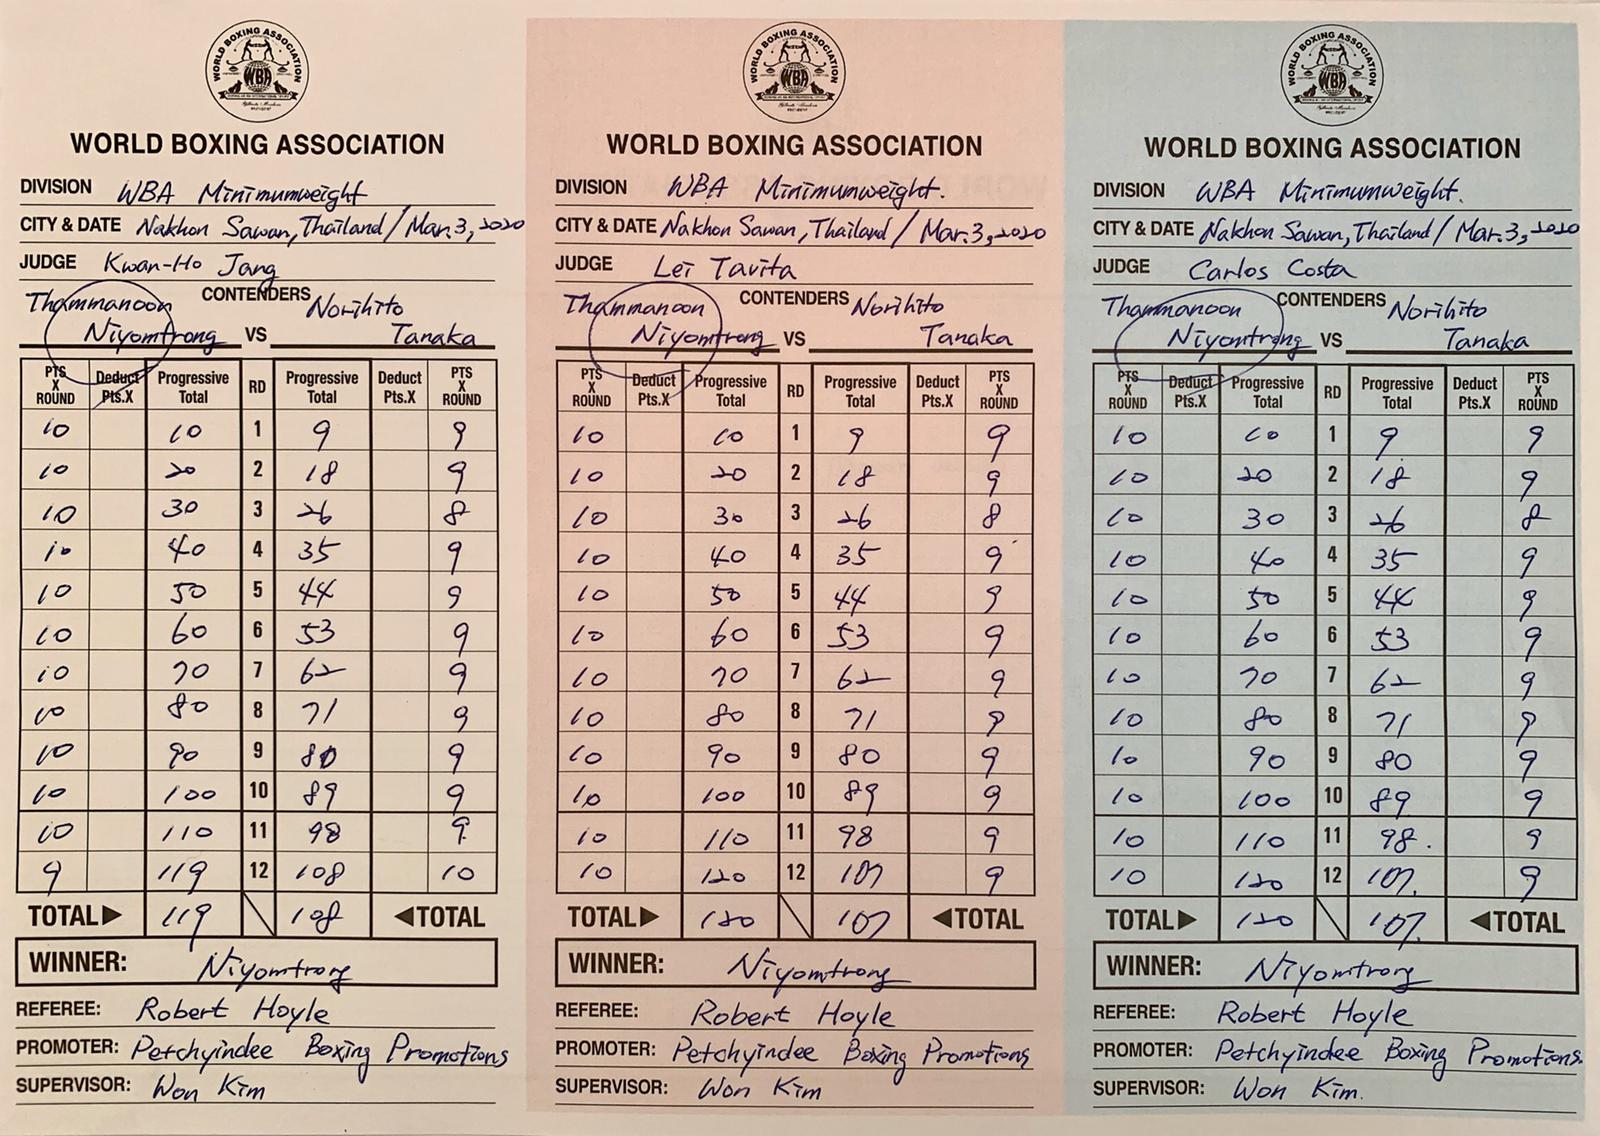 WORLD BOXING ASSOCIATION
WBA
WORLD BOXING ASSOCIATION
DIVISION WBA Minimumweight
CITY & DATE Nakhon Sawan, Thailand / Mar. 3, 2020
JUDGE Kwan-Ho Jang
CONTENDERS
Thammanoon Norihito
Niyomtrong VS Tanaka
PTS X ROUND Deduct Pts.X Progressive Total RD Progressive Total Deduct Pts.X PTS X ROUND
10 10 1 9 9
10 20 2 18 9
10 30 3 26 8
10 40 4 35 9
10 50 5 44 9
10 60 6 53 9
10 70 7 62 9
10 80 8 71 9
10 90 9 80 9
10 100 10 89 9
10 110 11 98 9
9 119 12 108 10
TOTAL▶ 119 108 ◀TOTAL
WINNER: Niyomtrong
REFEREE: Robert Hoyle
PROMOTER: Petchyindee Boxing Promotions
SUPERVISOR: Won Kim
WORLD BOXING ASSOCIATION
WBA
WORLD BOXING ASSOCIATION
DIVISION WBA Minimumweight.
CITY & DATE Nakhon Sawan, Thailand / Mar. 3, 2020
JUDGE Lei Tavita
CONTENDERS
Thammanoon Norihito
Niyomtrong VS Tanaka
PTS X ROUND Deduct Pts.X Progressive Total RD Progressive Total Deduct Pts.X PTS X ROUND
10 10 1 9 9
10 20 2 18 9
10 30 3 26 8
10 40 4 35 9
10 50 5 44 9
10 60 6 53 9
10 70 7 62 9
10 80 8 71 9
10 90 9 80 9
10 100 10 89 9
10 110 11 98 9
10 120 12 107 9
TOTAL▶ 120 107 ◀TOTAL
WINNER: Niyomtrong
REFEREE: Robert Hoyle
PROMOTER: Petchyindee Boxing Promotions
SUPERVISOR: Won Kim
WORLD BOXING ASSOCIATION
WBA
WORLD BOXING ASSOCIATION
DIVISION WBA Minimumweight.
CITY & DATE Nakhon Sawan, Thailand / Mar. 3, 2020
JUDGE Carlos Costa
CONTENDERS
Thammanoon Norihito
Niyomtrong VS Tanaka
PTS X ROUND Deduct Pts.X Progressive Total RD Progressive Total Deduct Pts.X PTS X ROUND
10 10 1 9 9
10 20 2 18 9
10 30 3 26 8
10 40 4 35 9
10 50 5 44 9
10 60 6 53 9
10 70 7 62 9
10 80 8 71 9
10 90 9 80 9
10 100 10 89 9
10 110 11 98. 9
10 120 12 107. 9
TOTAL▶ 120 107. ◀TOTAL
WINNER: Niyomtrong
REFEREE: Robert Hoyle
PROMOTER: Petchyindee Boxing Promotions.
SUPERVISOR: Won Kim.